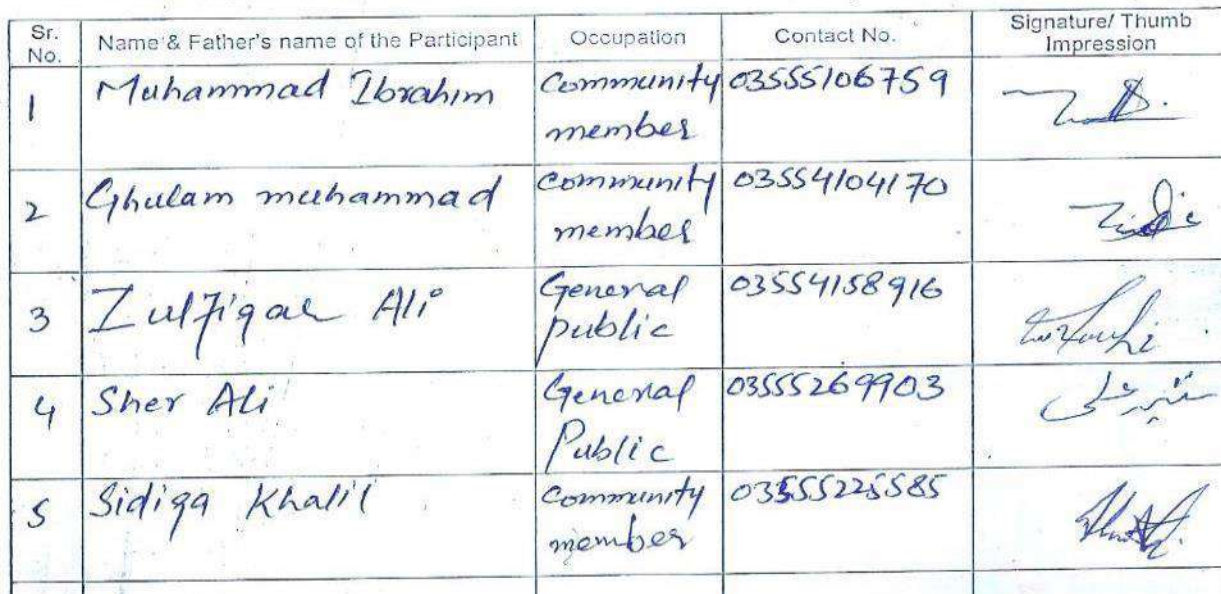 Sr. No. Name & Father's name of the Participant Occupation Contact No. Signature/ Thumb Impression
1 Muhammad Ibrahim Community member 03555106759
2 Ghulam muhammad Community member 03554104170
3 Zulfiqar Ali General public 03554158916
4 Sher Ali General Public 03555269903 شیر علی
5 Sidiqa Khalil Community member 03555225585